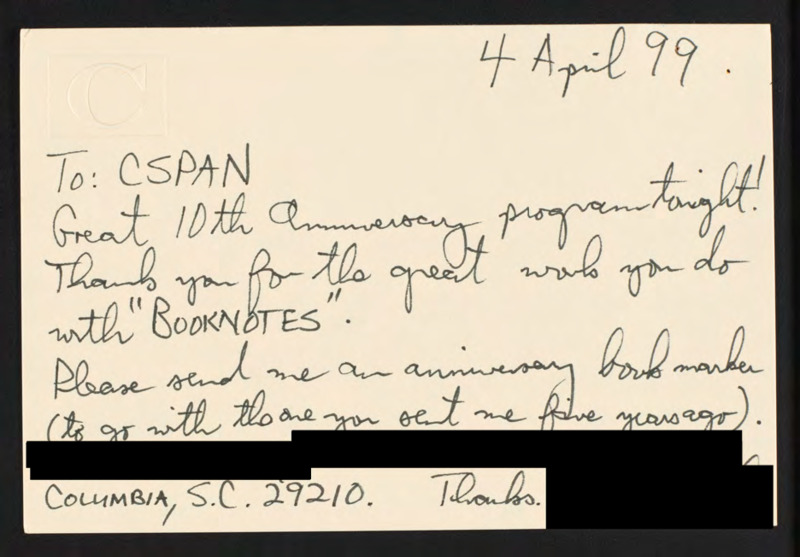 C
4 April 99.
To: CSPAN
Great 10th Anniversary program tonight!
Thank you for the great work you do
with "BOOKNOTES".
Please send me an anniversary book marker
(to go with the one you sent me five years ago).
COLUMBIA, S.C. 29210. Thanks.